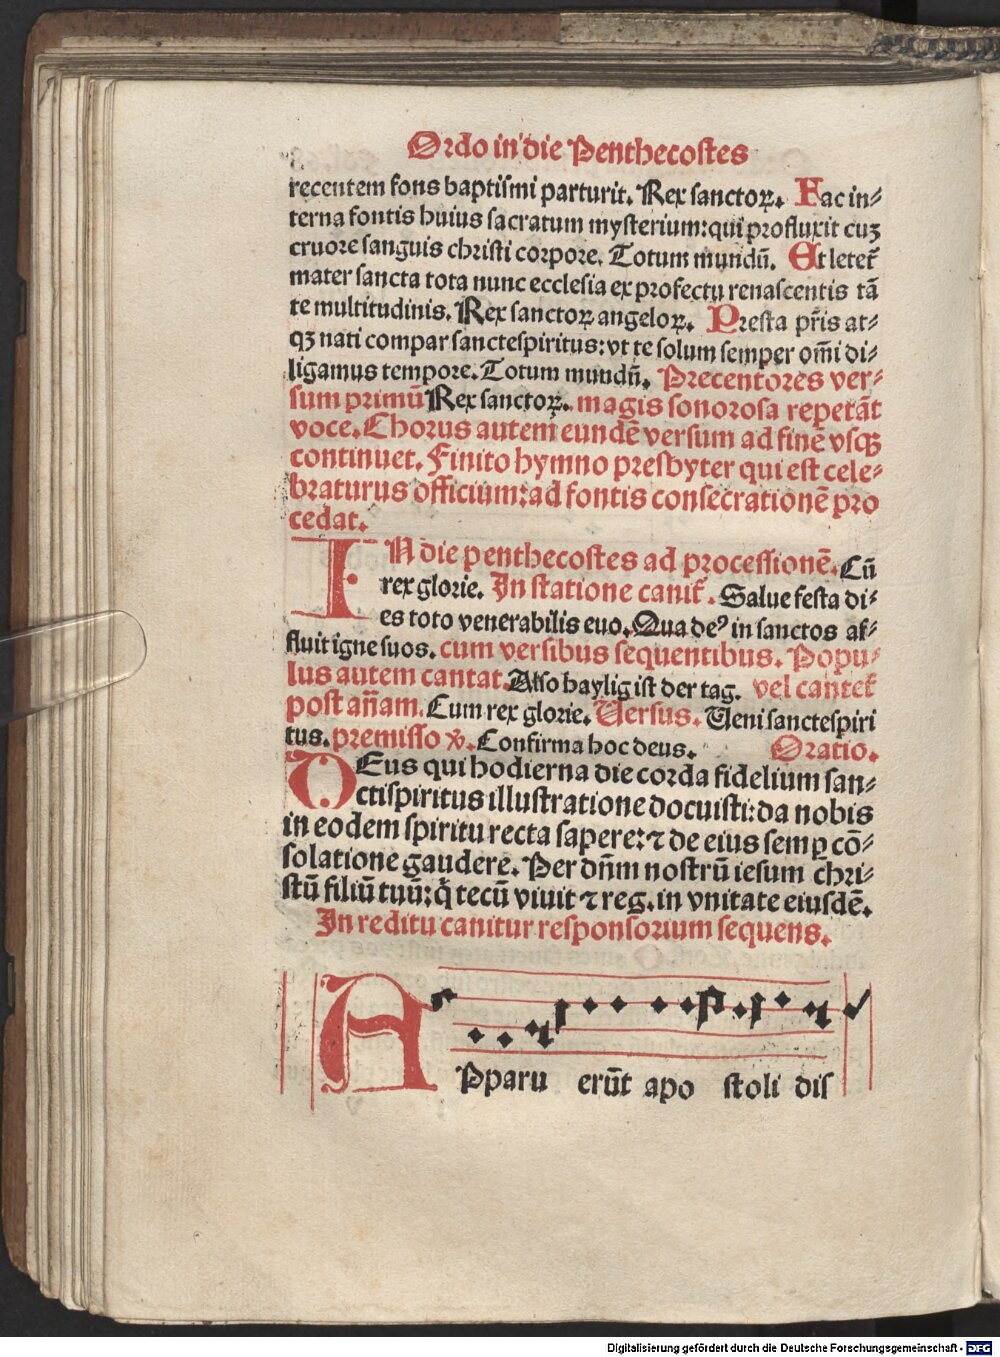 Ordo in die Penthecostes
recentem fons baptismi parturit. Rex sanctoꝝ. Fac in⸗
terna fontis huius sacratum mysterium: qui profluxit cuʒ
cruore sanguis christi corpore. Totum mundū. Et letet᷑
mater sancta tota nunc ecclesia ex profectu renascentis tā
te multitudinis. Rex sanctoꝝ angeloꝝ. Presta pr̄is at⸗
qʒ nati compar sanctespiritus: vt te solum semper om̄i di⸗
ligamus tempore. Totum mundū. Precentores ver⸗
sum primū Rex sanctoꝝ. magis sonorosa repetāt
voce. Chorus autem eundē versum ad finē vsqʒ
continuet. Finito hymno presbyter qui est cele⸗
braturus officium: ad fontis consecrationē pro
cedat.
IN die penthecostes ad processionē. Cū
rex glorie. In statione canit᷑. Salue festa di⸗
es toto venerabilis euo. Qua deꝰ in sanctos af⸗
fluit igne suos. cum versibus sequentibus. Popu⸗
lus autem cantat. Also haylig ist der tag. vel cantet᷑
post an̄am. Cum rex glorie. Versus. Veni sanctespiri
tus. premisso ꝟ. Confirma hoc deus. Oratio.
DEus qui hodierna die corda fidelium san⸗
ctispiritus illustratione docuisti: da nobis
in eodem spiritu recta sapere: ⁊ de eius semꝑ cō⸗
solatione gaudere. Per dn̄m nostrū iesum chri⸗
stū filiū tuū: q̄ tecū viuit ⁊ reg. in vnitate eiusdē.
In reditu canitur responsorium sequens.
APparu erūt apo stoli dis
Digitalisierung gefördert durch die Deutsche Forschungsgemeinschaft - DFG